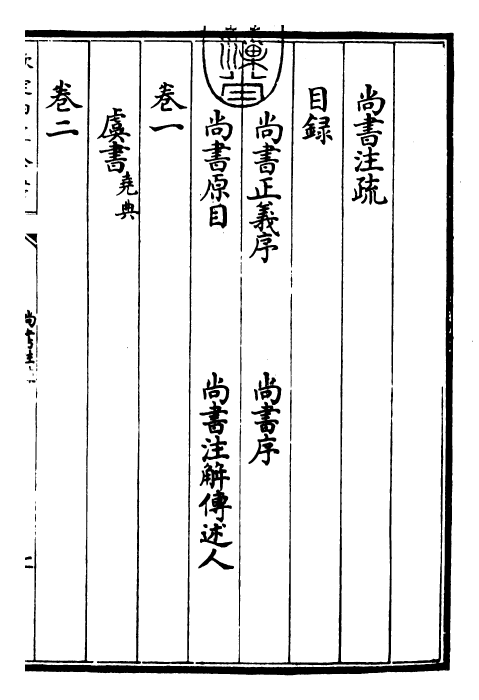 尚書注疏
目録
尚書正義序 尚書序
尚書原目 尚書注解傳述人
卷一
虞書堯典
卷二